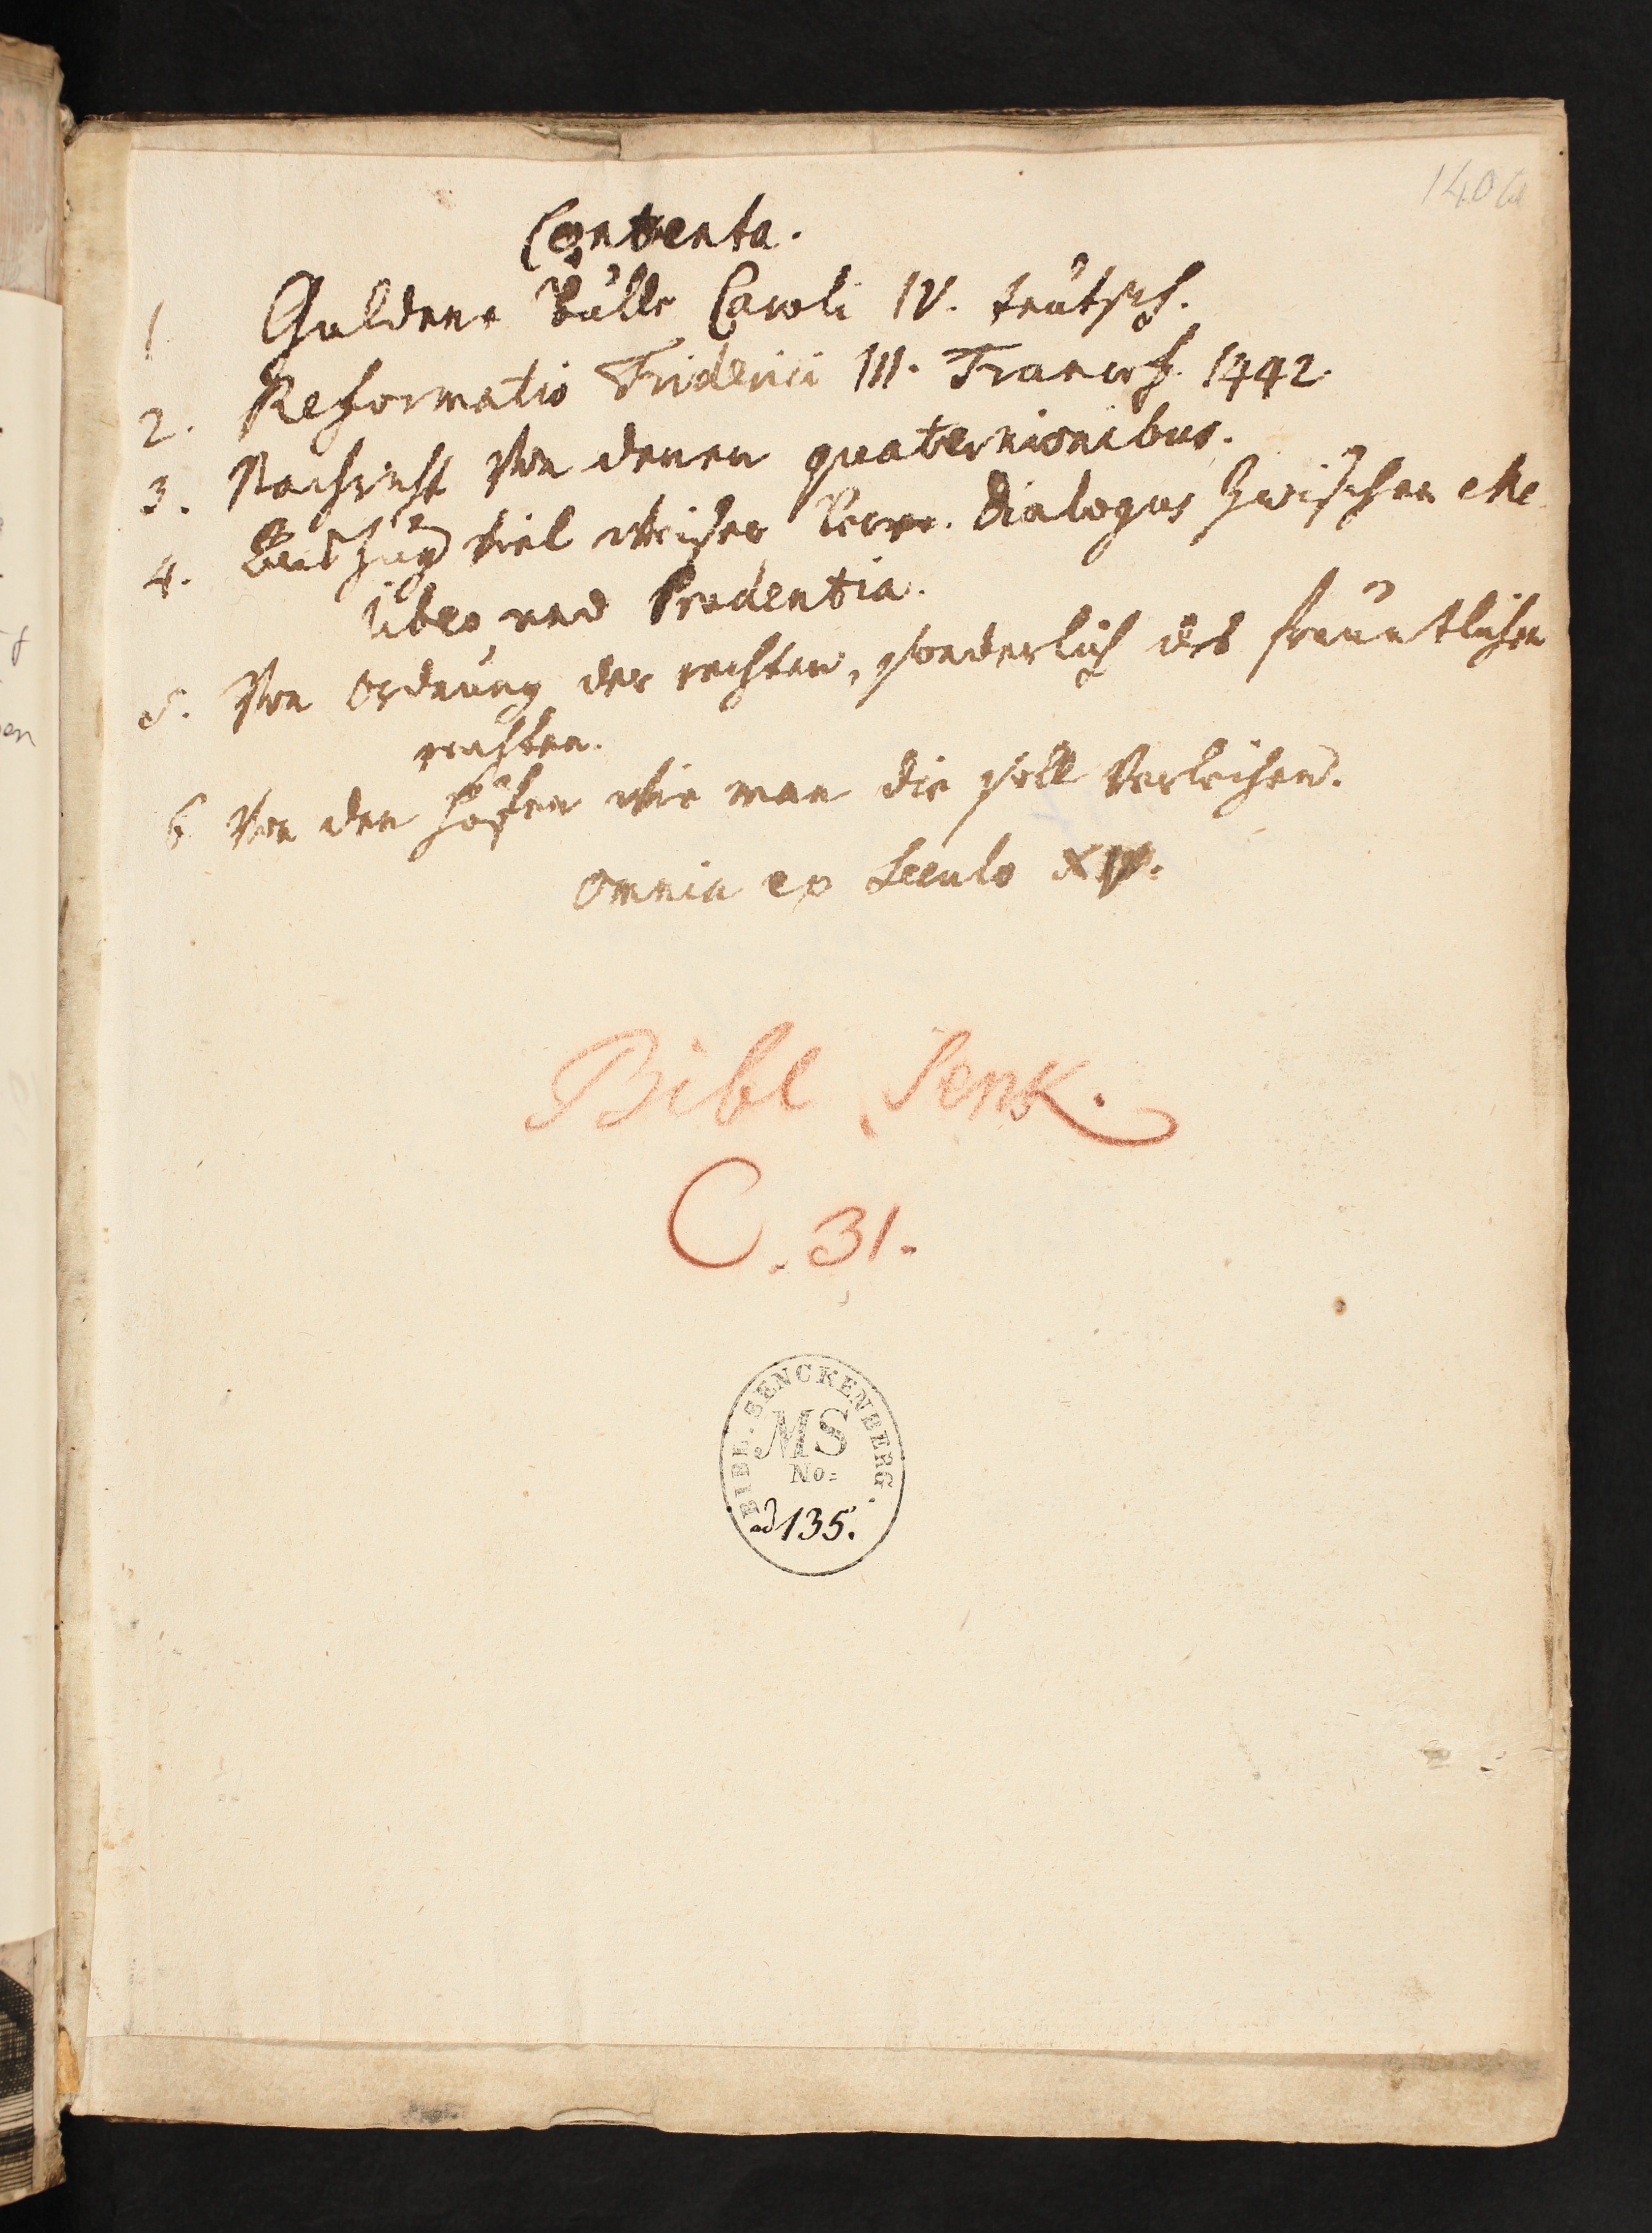 140a
Contenta.
1 Guldene Bulle Caroli IV. teutsch.
2. Reformatio Friderici III. Francof. 1442.
3. Nachricht von denen quaternionibus.
4. Auszug viel weiser Dialogus zwischen Me
liber und Prudentia.
5. Von ordnung der rechten, sonderlich des freuntlichen
rechten.
6 Von den hoffen wie man die soll verleihen.
Omnia ex Seculo XV.
Bibl Senk.
C. 31.
BIBL. SENCKENBERG.
MS
No:
ad 135.